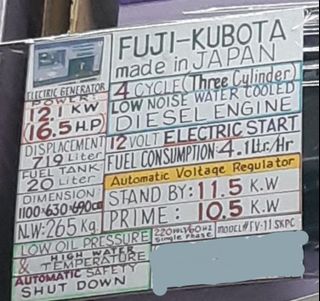 FUJI-KUBOTA
made in JAPAN
ELECTRIC GENERATOR
POWER:
12.1 KW
(16.5 H.P)
DISPLACEMENT
719 Liter
FUEL TANK:
20 Liter
DIMENSION
1100·630·690cm
N.W: 265 kg.
4 CYCLE (Three Cylinder)
LOW NOISE WATER COOLED
DIESEL ENGINE
12 VOLT ELECTRIC START
FUEL CONSUMPTION: 4.1Ltr/Hr
Automatic Voltage Regulator
STAND BY: 11.5 K.W
PRIME: 10.5 K.W
LOW OIL PRESSURE
& HIGH WATER
TEMPERATURE
AUTOMATIC SAFETY
SHUT DOWN
220 Volt/60Hz
Single Phase
MODEL#TV-11 SKPC